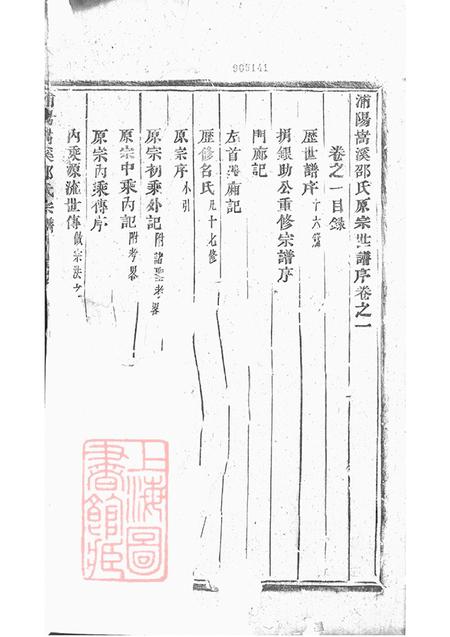 905141
浦陽嵩溪邵氏原宗世譜序卷之一
卷之一目録
歴世譜序十六篇
捐銀助公重修宗譜序
門廊記
左首廂記
歴修名氏凡十七修
原宗序小引
原宗初乘外記附諸聖考畧
原宗中乘內記附考畧
原宗內乘傳序
內乘源流世傳做宗法之
浦陽嵩溪邵氏宗譜
上海圖書館藏